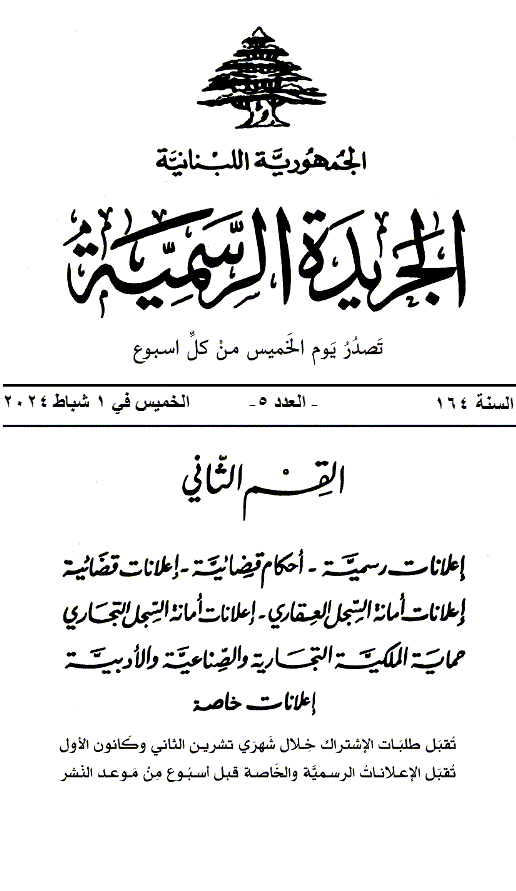 الجمهورية اللبنانية
الجريدة الرسمية
تَصدُرُ يَوم الخَميس مِنْ كلِّ اسبوع
السنة ١٦٤ - العدد ٥ - الخميس في ١ شباط ٢٠٢٤
القِسْم الثّاني
إعلانات رسميَّة - أحكام قضائيَّة - إعلانات قضائية
إعلانات أمانة السِّجل العقاري - إعلانات أمانة السِّجل التجاري
حماية الملكيَّة التجارية والصِّناعيَّة والأدبيَّة
إعلانات خاصة
تُقبَل طلبَات الإشتراك خِلال شَهرَي تشرين الثاني وكَانون الأول
تُقبَل الإعلاناتُ الرسميَّة والخَاصة قبل أسبُوع مِنْ مَوعد النَشر